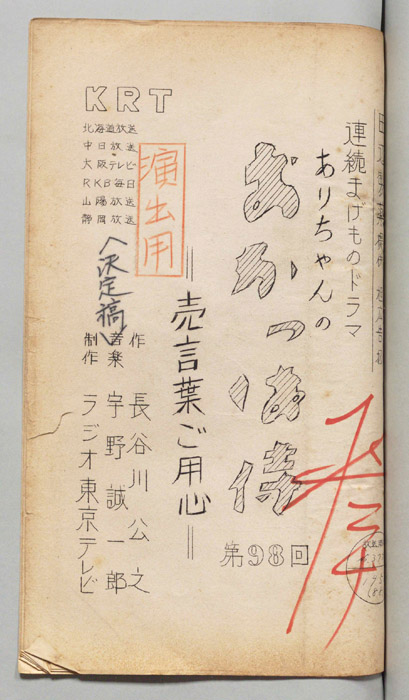 連続まげものドラマ
ありちゃんの
おかっぱ侍
第98回
＝売言葉ご用心＝
演出用
KRT
北海道放送
中日放送
大阪テレビ
RKB毎日
山陽放送
静岡放送
〈決定稿〉
作 長谷川公之
音楽 宇野誠一郎
制作 ラジオ東京テレビ